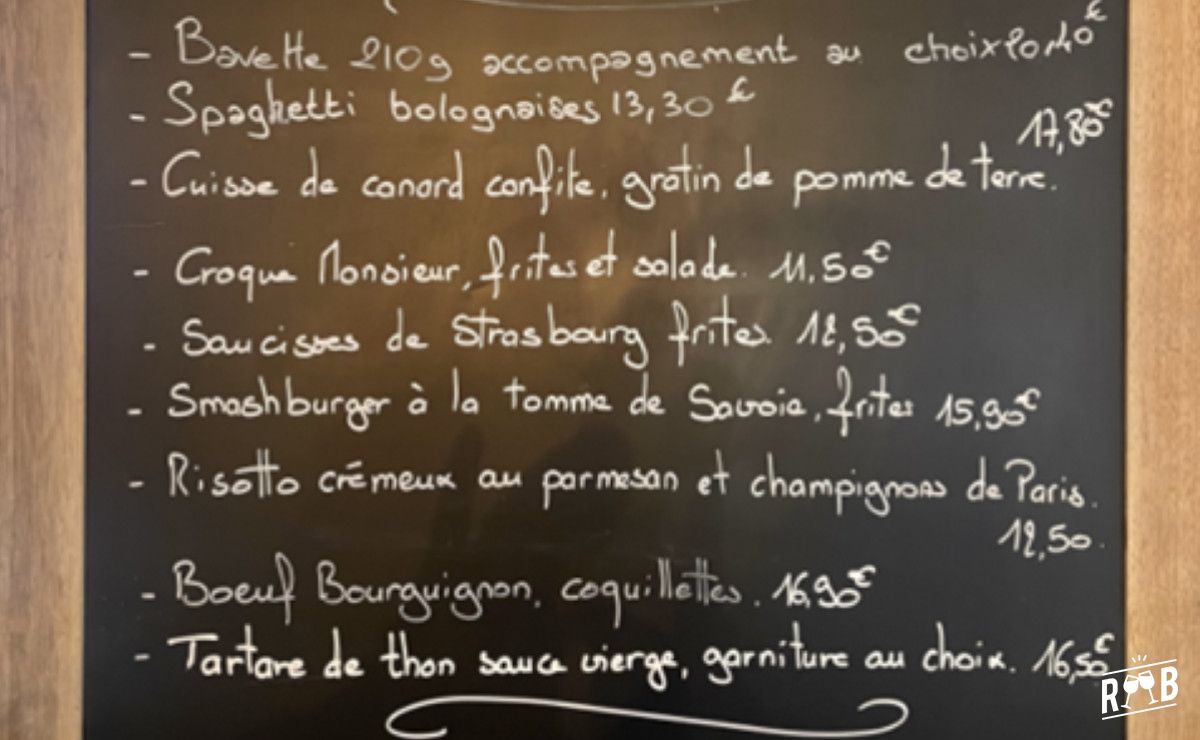 - Bavette 210g accompagnement au choix 20,40€
- Spaghetti bolognaises 13,30€
17,80€
- Cuisse de canard confite, gratin de pomme de terre.
- Croque Monsieur, frites et salade. 11,50€
- Saucisses de Strasbourg frites. 12,50€
- Smashburger à la tomme de Savoie, frites 15,90€
- Risotto crémeux au parmesan et champignons de Paris.
12,50.
- Boeuf Bourguignon, coquillettes. 16,90€
- Tartare de thon sauce vierge, garniture au choix. 16,50€
R B